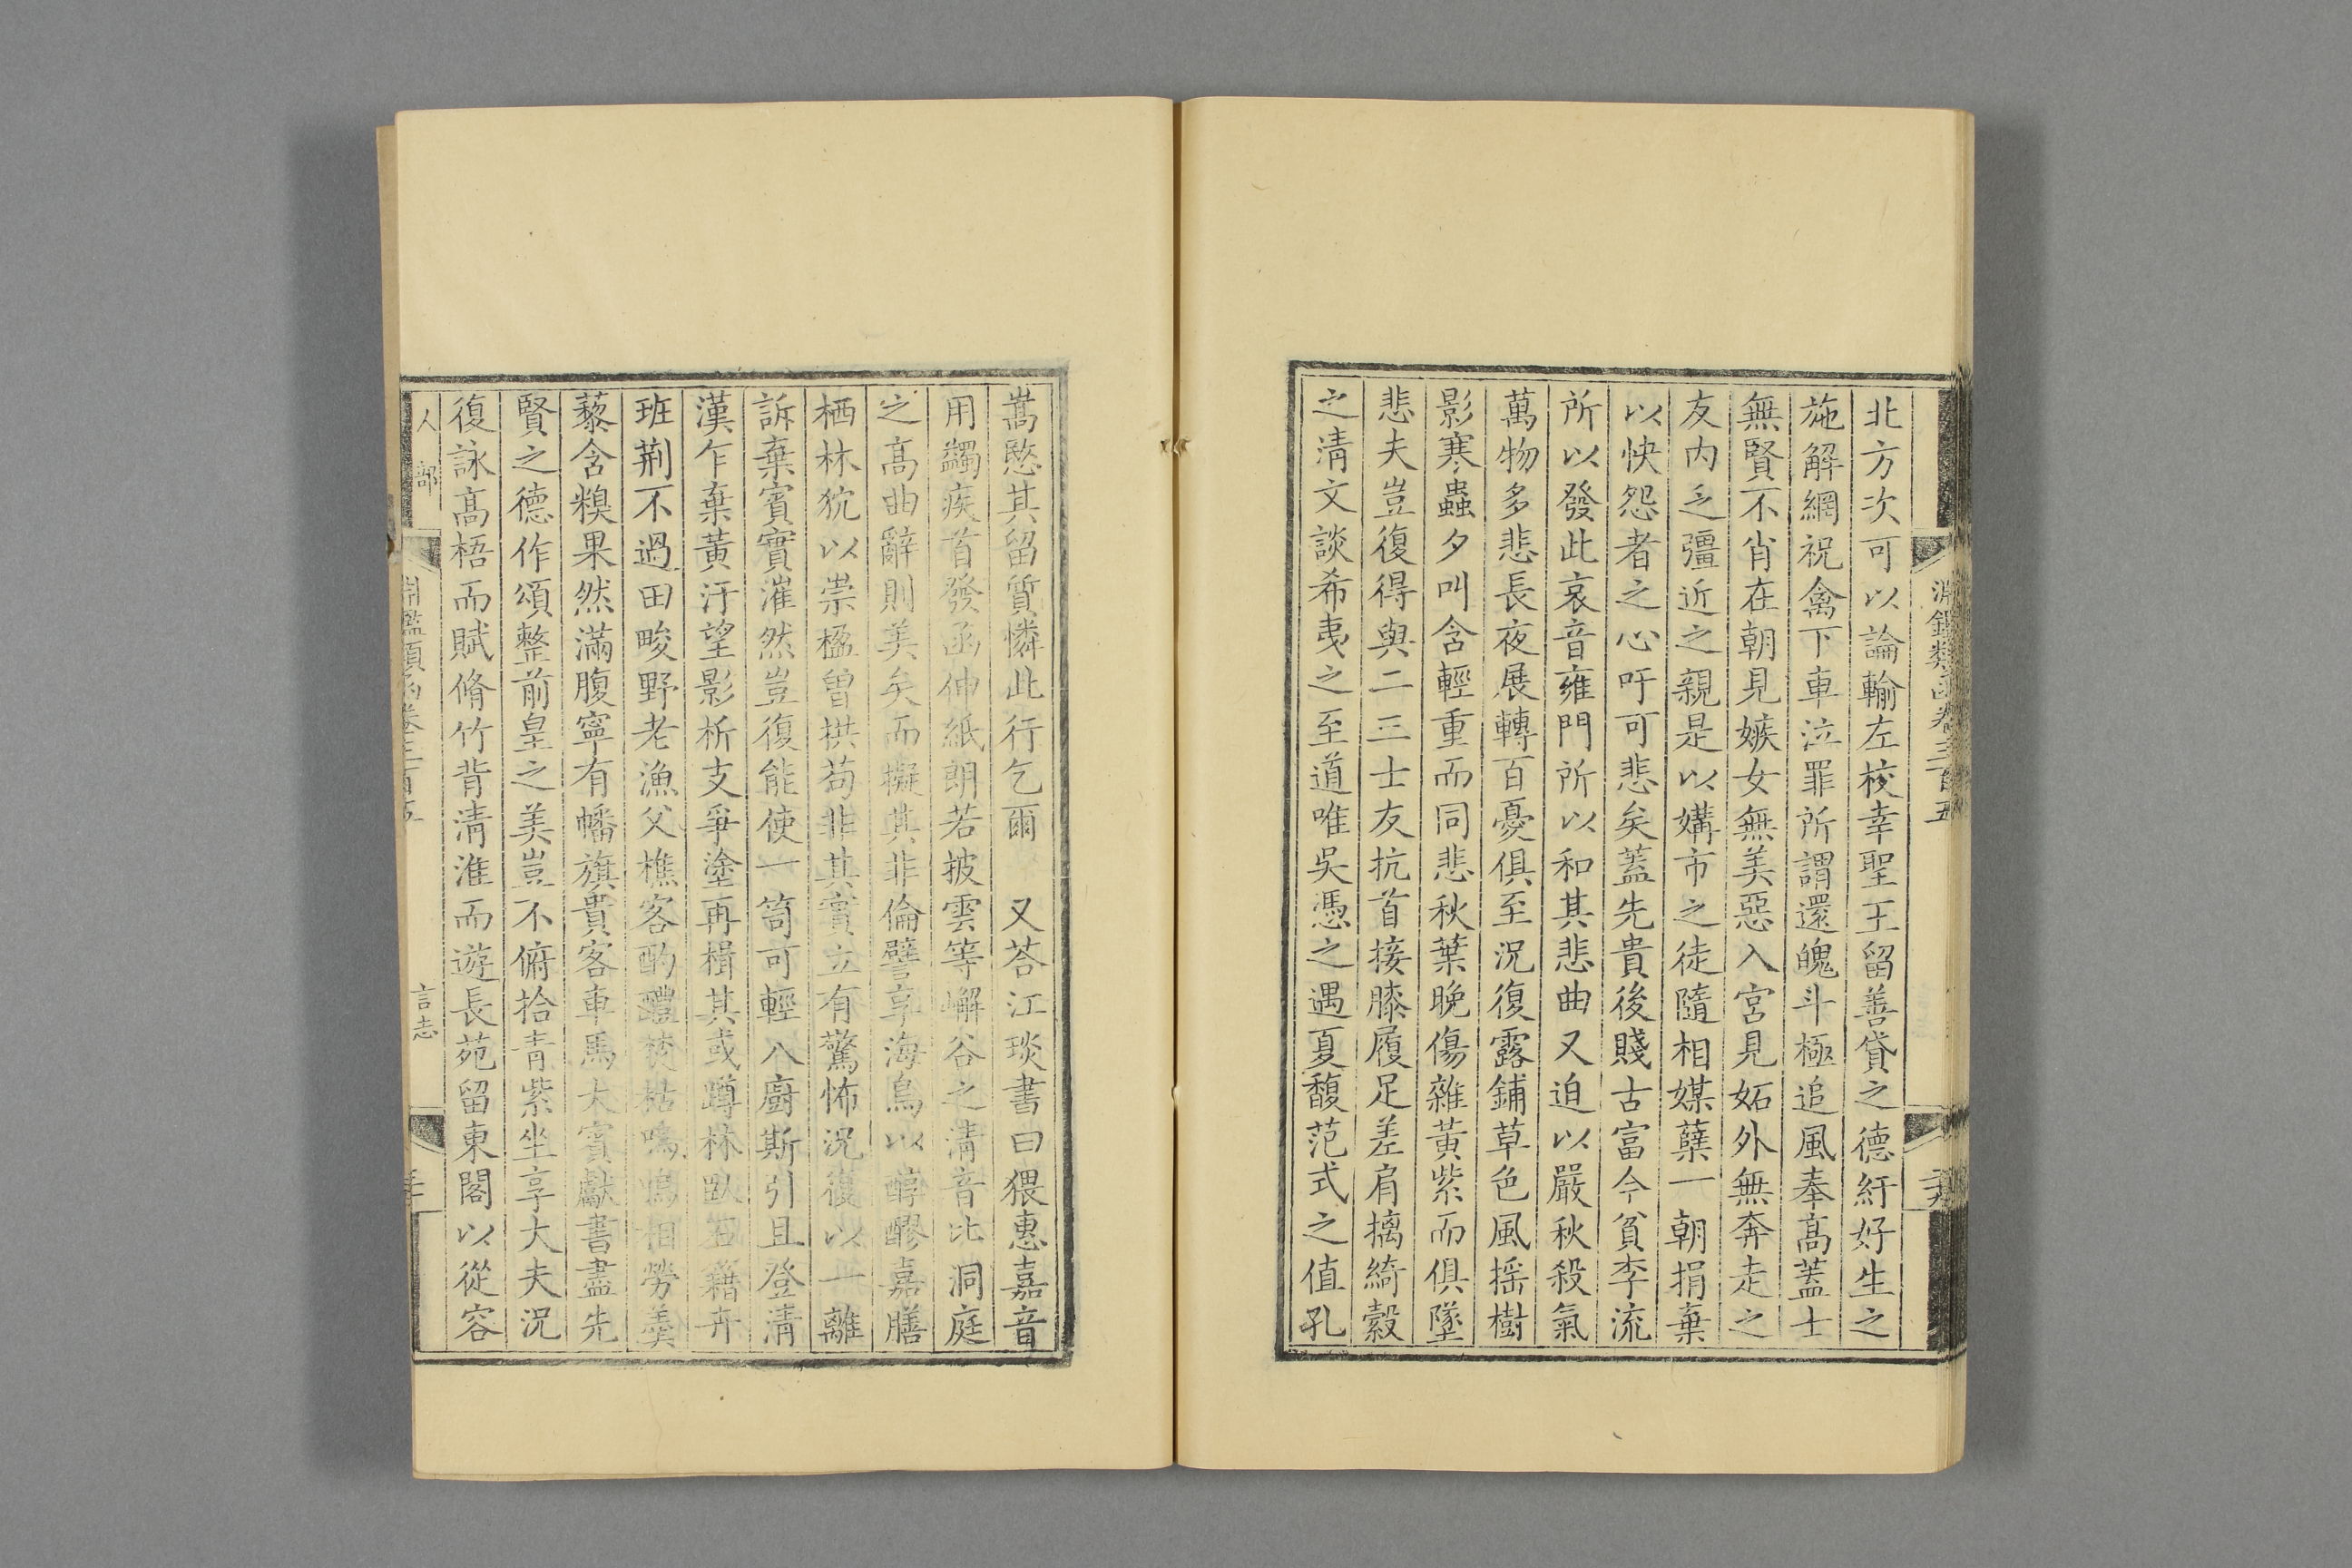 淵鑑類函卷三百五
北方次可以論輸左校幸聖王留善貸之德紆好生之
施解網祝禽下車泣罪所謂還魄斗極追風奉髙蓋士
無賢不肖在朝見嫉女無美惡入宮見妬外無奔走之
友内乏彊近之親是以媾市之徒隨相媒糵一朝捐棄
以快怨者之心吁可悲矣蓋先貴後賤古富今貧李流
所以發此哀音雍門所以和其悲曲又迫以嚴秋殺氣
萬物多悲長夜展轉百憂俱至況復露鋪草色風揺樹
影寒蟲夕叫含輕重而同悲秋葉晚傷雜黃紫而俱墜
悲夫豈復得與二三士友抗首接膝履足差肩摛綺縠
之清文談希夷之至道唯吳憑之遇夏馥范式之值孔
嵩愍其留質憐此行乞爾　又荅江琰書曰猥惠嘉音
用蠲疾首發函伸紙朗若披雲等嶰谷之清音比洞庭
之髙曲辭則美矣而擬其非倫譬享海鳥以醇醪嘉膳
栖林狖以崇楹曾拱苟非其實立有驚怖況復以一離
訴棄賓實漼然豈復能使一笥可輕八廚斯引且登清
漢乍棄黃汙望影析支爭塗再楫其或蹲林臥石籍卉
班荆不過田畯野老漁父樵客酌醴焚枯鳴鳴相勞羮
藜含糗果然滿腹寧有幡旗貴客車馬大賓獻書盡先
賢之德作頌整前皇之美豈不俯拾青紫坐享大夫況
復詠髙梧而賦脩竹背清淮而遊長苑留東閣以從容
人部
淵鑑類函卷三百五
言志